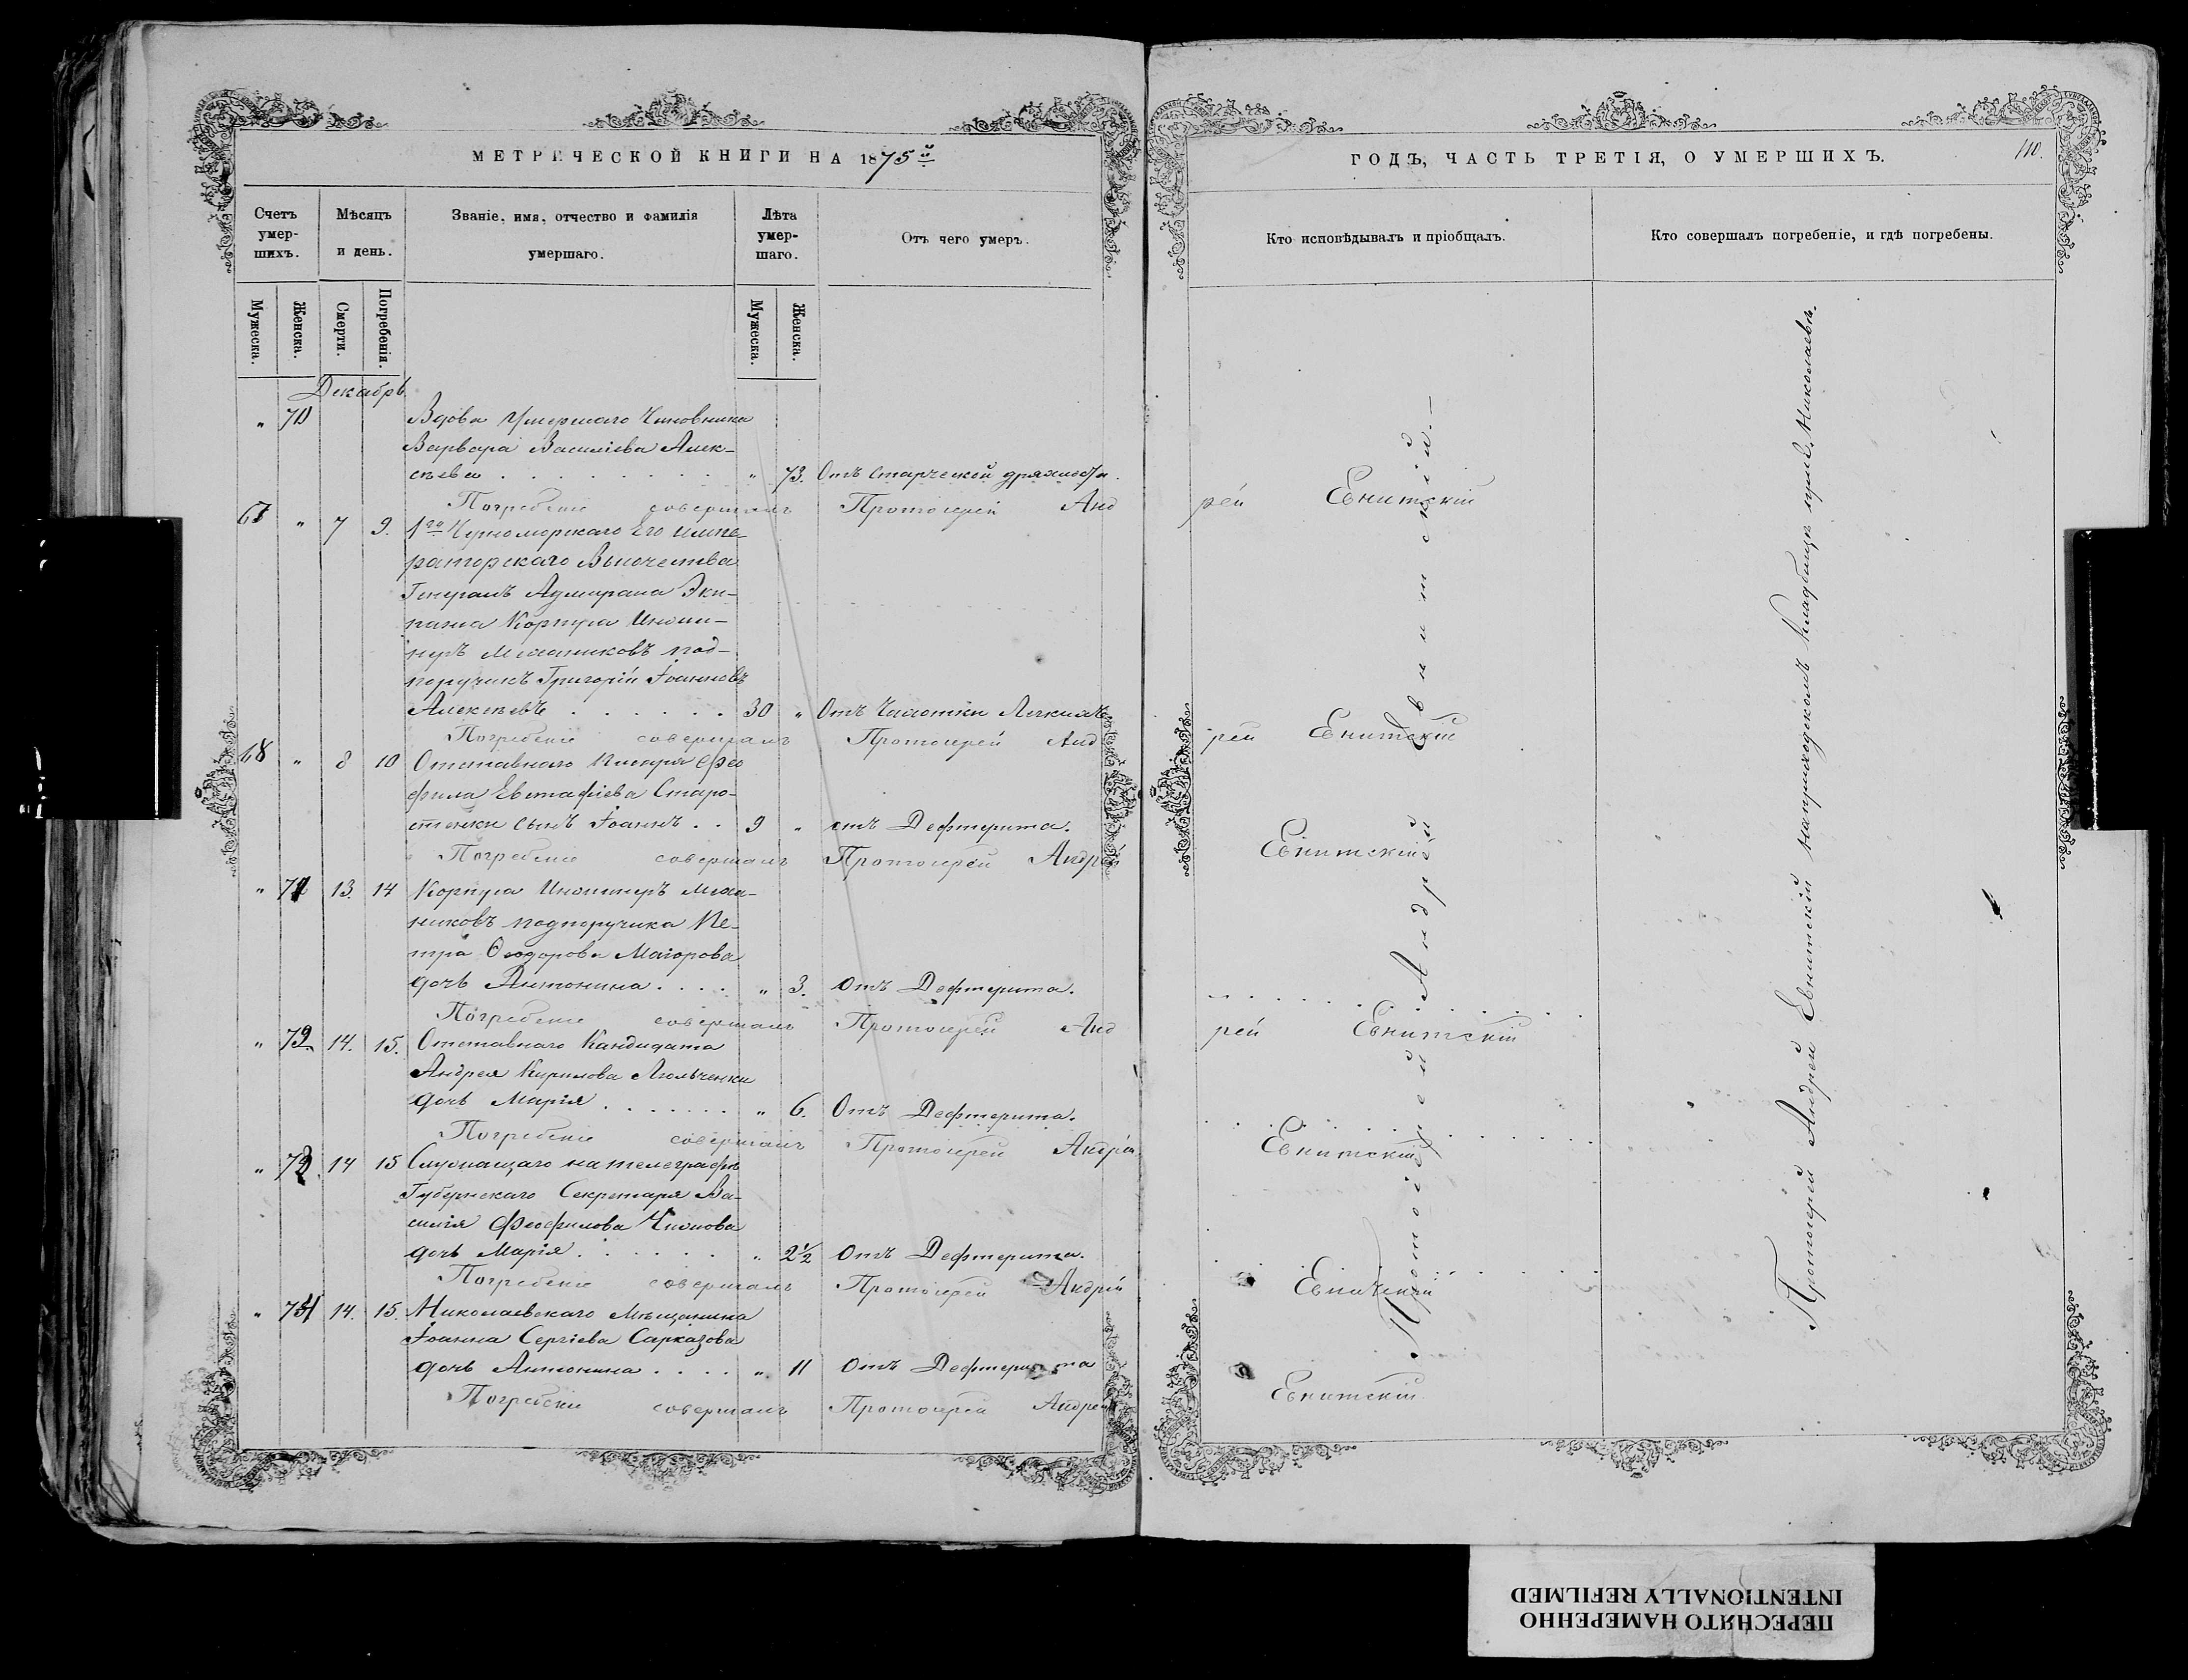 МЕТРИЧЕСКОЙ КНИГИ НА 1875й
Счетъ умер-шихъ.
Мѣсяцъ и день.
Званіе, имя, отчество и фамилія умершаго.
Лѣта умер-шаго.
Отъ чего умеръ.
Мужеска.
Женска.
Смерти.
Погребенія.
Мужеска.
Женска.
Декабрь
" 70 Вдова Умершаго Чиновника
Варвара Василіева Алек-
сѣева . . . . . . " 73. Отъ Старческой дряхлости.
Погребеніе совершалъ Протоіерей Анд
67 " 7 9. 1го Черноморскаго Его Импе-
раторскаго Высочества
Генералъ Адмирала Эки-
пажа Корпуса Инжи-
неръ Механиковъ под-
поручикъ Григорій Іоанновъ
Алексѣевъ . . . . . . 30 " Отъ Чахотки Легкихъ
Погребеніе совершалъ Протоіерей Анд
68 " 8 10 Отставнаго Писаря Фео
фила Евстафіева Старо-
стенки сынъ Іоаннъ . . 9 " отъ Дефтерита.
Погребеніе совершалъ Протоіерей Андрей
" 71 13. 14 Корпуса Инженеръ Меха-
никовъ подпоручика Пе-
тра Ѳеодорова Маіорова
дочь Антонина . . . . " 3. Отъ Дефтерита.
Погребеніе совершалъ Протоіерей Анд
" 72. 14. 15. Отставнаго Кандидата
Андрея Кирилова Люльченки
дочь Марія . . . . . . . " 6. Отъ Дефтерита.
Погребеніе совершалъ Протоіерей Андрей
" 73. 14 15 Служащаго на телеграфѣ
Губернскаго Секретаря Ва-
силія Феофилова
дочь Марія . . . . . . " 2½ Отъ Дефтерита.
Погребеніе совершалъ Протоіерей Андрей
" 74 14. 15. Николаевскаго Мѣщанина
Іоанна Сергіева Сарказова
дочь Антонина . . . . " 11 Отъ Дефтерита
Погребеніе совершалъ Протоіерей Андрей
ГОДЪ, ЧАСТЬ ТРЕТІЯ, О УМЕРШИХЪ.
110.
Кто исповѣдывалъ и пріобщалъ.
Кто совершалъ погребеніе, и гдѣ погребены.
рей Евнитскій
рей Евнитскій
Евнитскій
рей Евнитскій
Евнитскій
Евнитскій
Евнитскій
Протоіерей Андрей Евнитскій.—
Протоіерей Андрей Евнитскій на приходскомъ Кладбищѣ при г. Николаевѣ.
ПЕРЕСНЯТО НАМЕРЕННО
INTENTIONALLY REFILMED